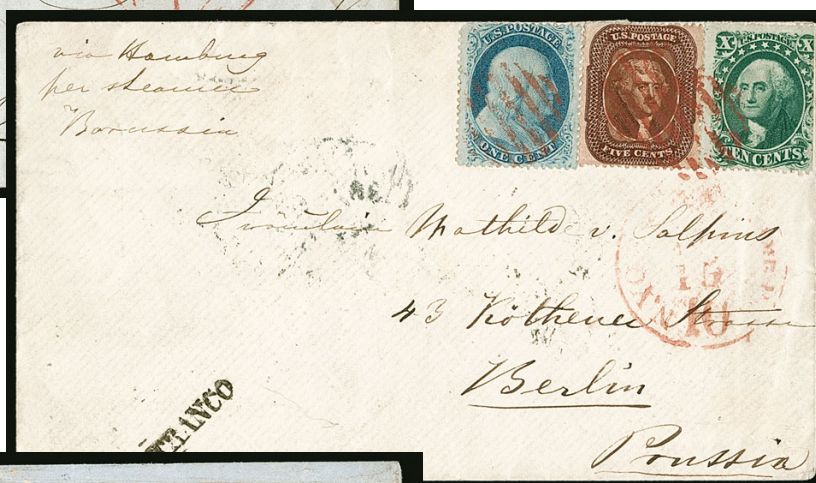 via Hamburg
per steamer
Borussia
U.S. POSTAGE
ONE CENT
U.S. POSTAGE
FIVE CENTS
X U.S. POSTAGE X
TEN CENTS
Fräulein Mathilde v. Salpius
15
10
43 Köthener Strasse
Berlin
Prussia
FRANCO